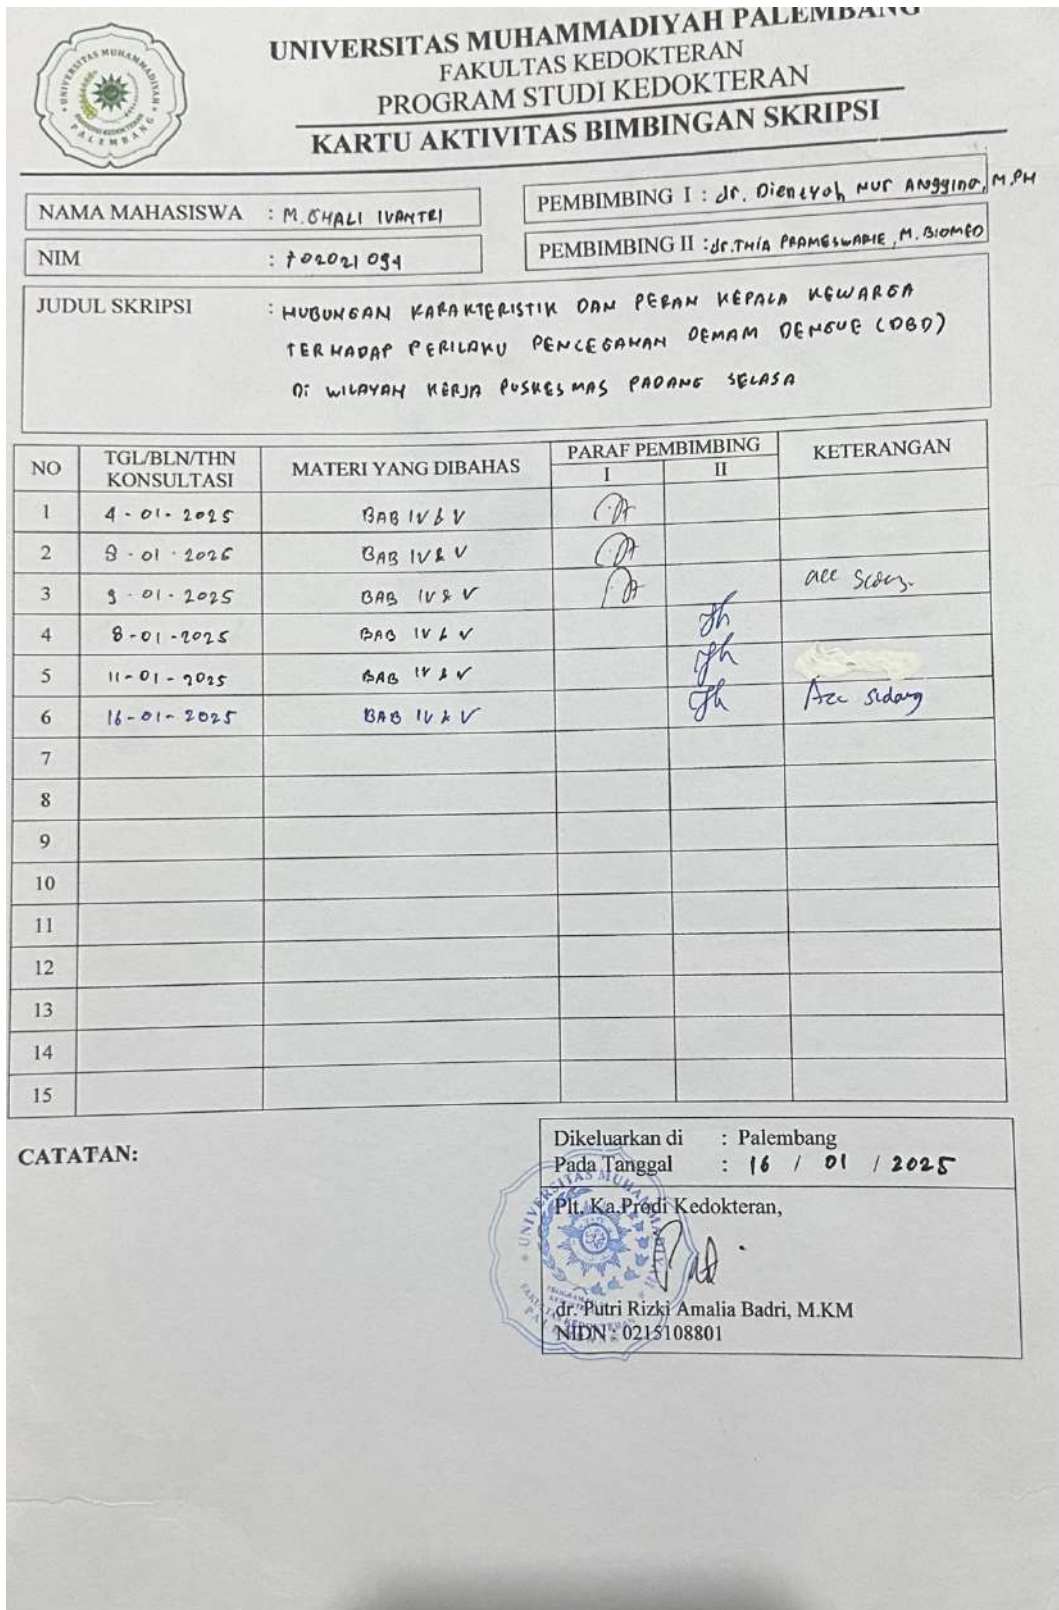 UNIVERSITAS MUHAMMADIYAH PALEMBANG
FAKULTAS KEDOKTERAN
PROGRAM STUDI KEDOKTERAN
KARTU AKTIVITAS BIMBINGAN SKRIPSI
NAMA MAHASISWA : M. GHALI IVANTRI
NIM : 702021094
PEMBIMBING I : dr. Dientyah Nur Anggina, M.PH
PEMBIMBING II : dr. THIA PRAMESWARIE, M. BIOMED
JUDUL SKRIPSI : HUBUNGAN KARAKTERISTIK DAN PERAN KEPALA KEWARGA
TERHADAP PERILAKU PENCEGAHAN DEMAM DENGUE (DBD)
Di WILAYAH KERJA PUSKESMAS PADANG SELASA
NO TGL/BLN/THN KONSULTASI MATERI YANG DIBAHAS PARAF PEMBIMBING I II KETERANGAN
1 4-01-2025 BAB IV & V
2 8-01-2025 BAB IV & V
3 9-01-2025 BAB IV & V acc
4 8-01-2025 BAB IV & V
5 11-01-2025 BAB IV & V
6 16-01-2025 BAB IV & V Acc sidang
7
8
9
10
11
12
13
14
15
CATATAN:
Dikeluarkan di : Palembang
Pada Tanggal : 16 / 01 / 2025
Plt. Ka.Prodi Kedokteran,
dr. Putri Rizki Amalia Badri, M.KM
NIDN : 0215108801